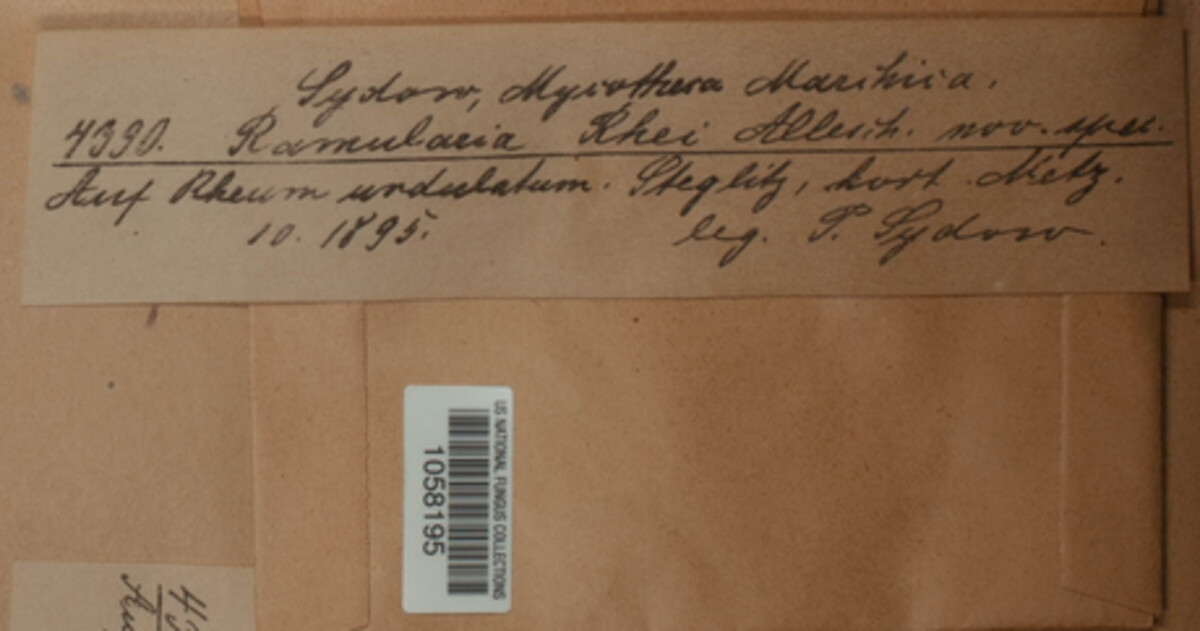 Sydow, Mycotheca Marchica.
4390. Ramularia Rhei Allesch. nov. spec.
Auf Rheum undulatum. Steglitz, hort. Metz.
10. 1895. leg. P. Sydow.
US NATIONAL FUNGUS COLLECTIONS
1058195
43
Auf